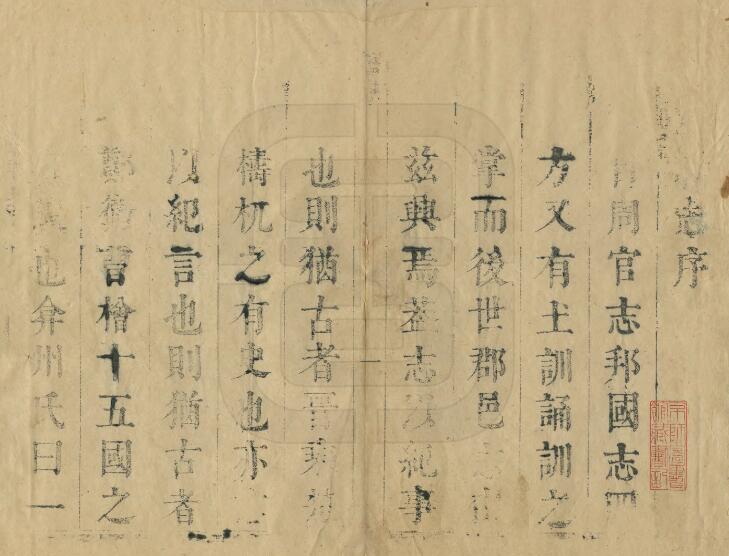 志序
周官志邦國志四
方又有土訓誦訓之
掌而後世郡邑
茲興焉葢志以紀事
也則猶古者晉乘
檮杌之有史也亦
以紀言也則猶古者
鄭衛曹檜十五國之
也弇州氏曰一